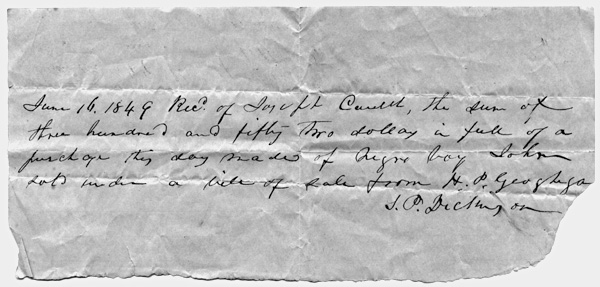 June 16. 1849 Recd. of Joseph the sum of
three hundred and fifty two dollars in full of a
purchase this day made of Negro boy John
sold under a bill of sale from H. P. Geoghegan
S. P. Dickinson